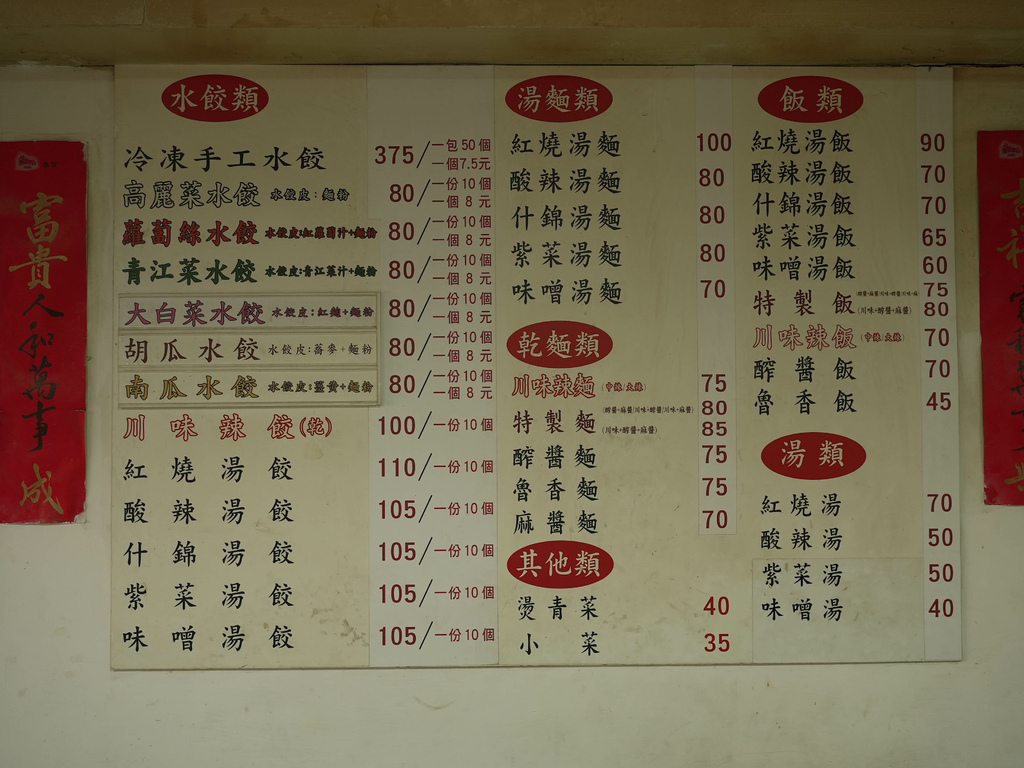 水餃類
冷凍手工水餃 375/一包50個
一個7.5元
高麗菜水餃 水餃皮：麵粉 80/一份10個
一個 8 元
蘿蔔絲水餃 水餃皮:紅蘿蔔汁+麵粉 80/一份10個
一個 8 元
青江菜水餃 水餃皮:青江菜汁+麵粉 80/一份10個
一個 8 元
大白菜水餃 水餃皮:紅麴+麵粉 80/一份10個
一個 8 元
胡瓜水餃 水餃皮:蕎麥+麵粉 80/一份10個
一個 8 元
南瓜水餃 水餃皮:薑黃+麵粉 80/一份10個
一個 8 元
川味辣餃(乾) 100/一份10個
紅燒湯餃 110/一份10個
酸辣湯餃 105/一份10個
什錦湯餃 105/一份10個
紫菜湯餃 105/一份10個
味噌湯餃 105/一份10個
湯麵類
紅燒湯麵 100
酸辣湯麵 80
什錦湯麵 80
紫菜湯麵 80
味噌湯麵 70
乾麵類
川味辣麵 (中辣 大辣) 75
特製麵 (醡醬+麻醬/川味+醡醬/川味+麻醬) 80
(川味+醡醬+麻醬) 85
醡醬麵 75
魯香麵 75
麻醬麵 70
其他類
燙青菜 40
小菜 35
飯類
紅燒湯飯 90
酸辣湯飯 70
什錦湯飯 70
紫菜湯飯 65
味噌湯飯 60
特製飯 75
(川味+醡醬+麻醬) 80
川味辣飯 (中辣 大辣) 70
醡醬飯 70
魯香飯 45
湯類
紅燒湯 70
酸辣湯 50
紫菜湯 50
味噌湯 40
富貴人和萬事成